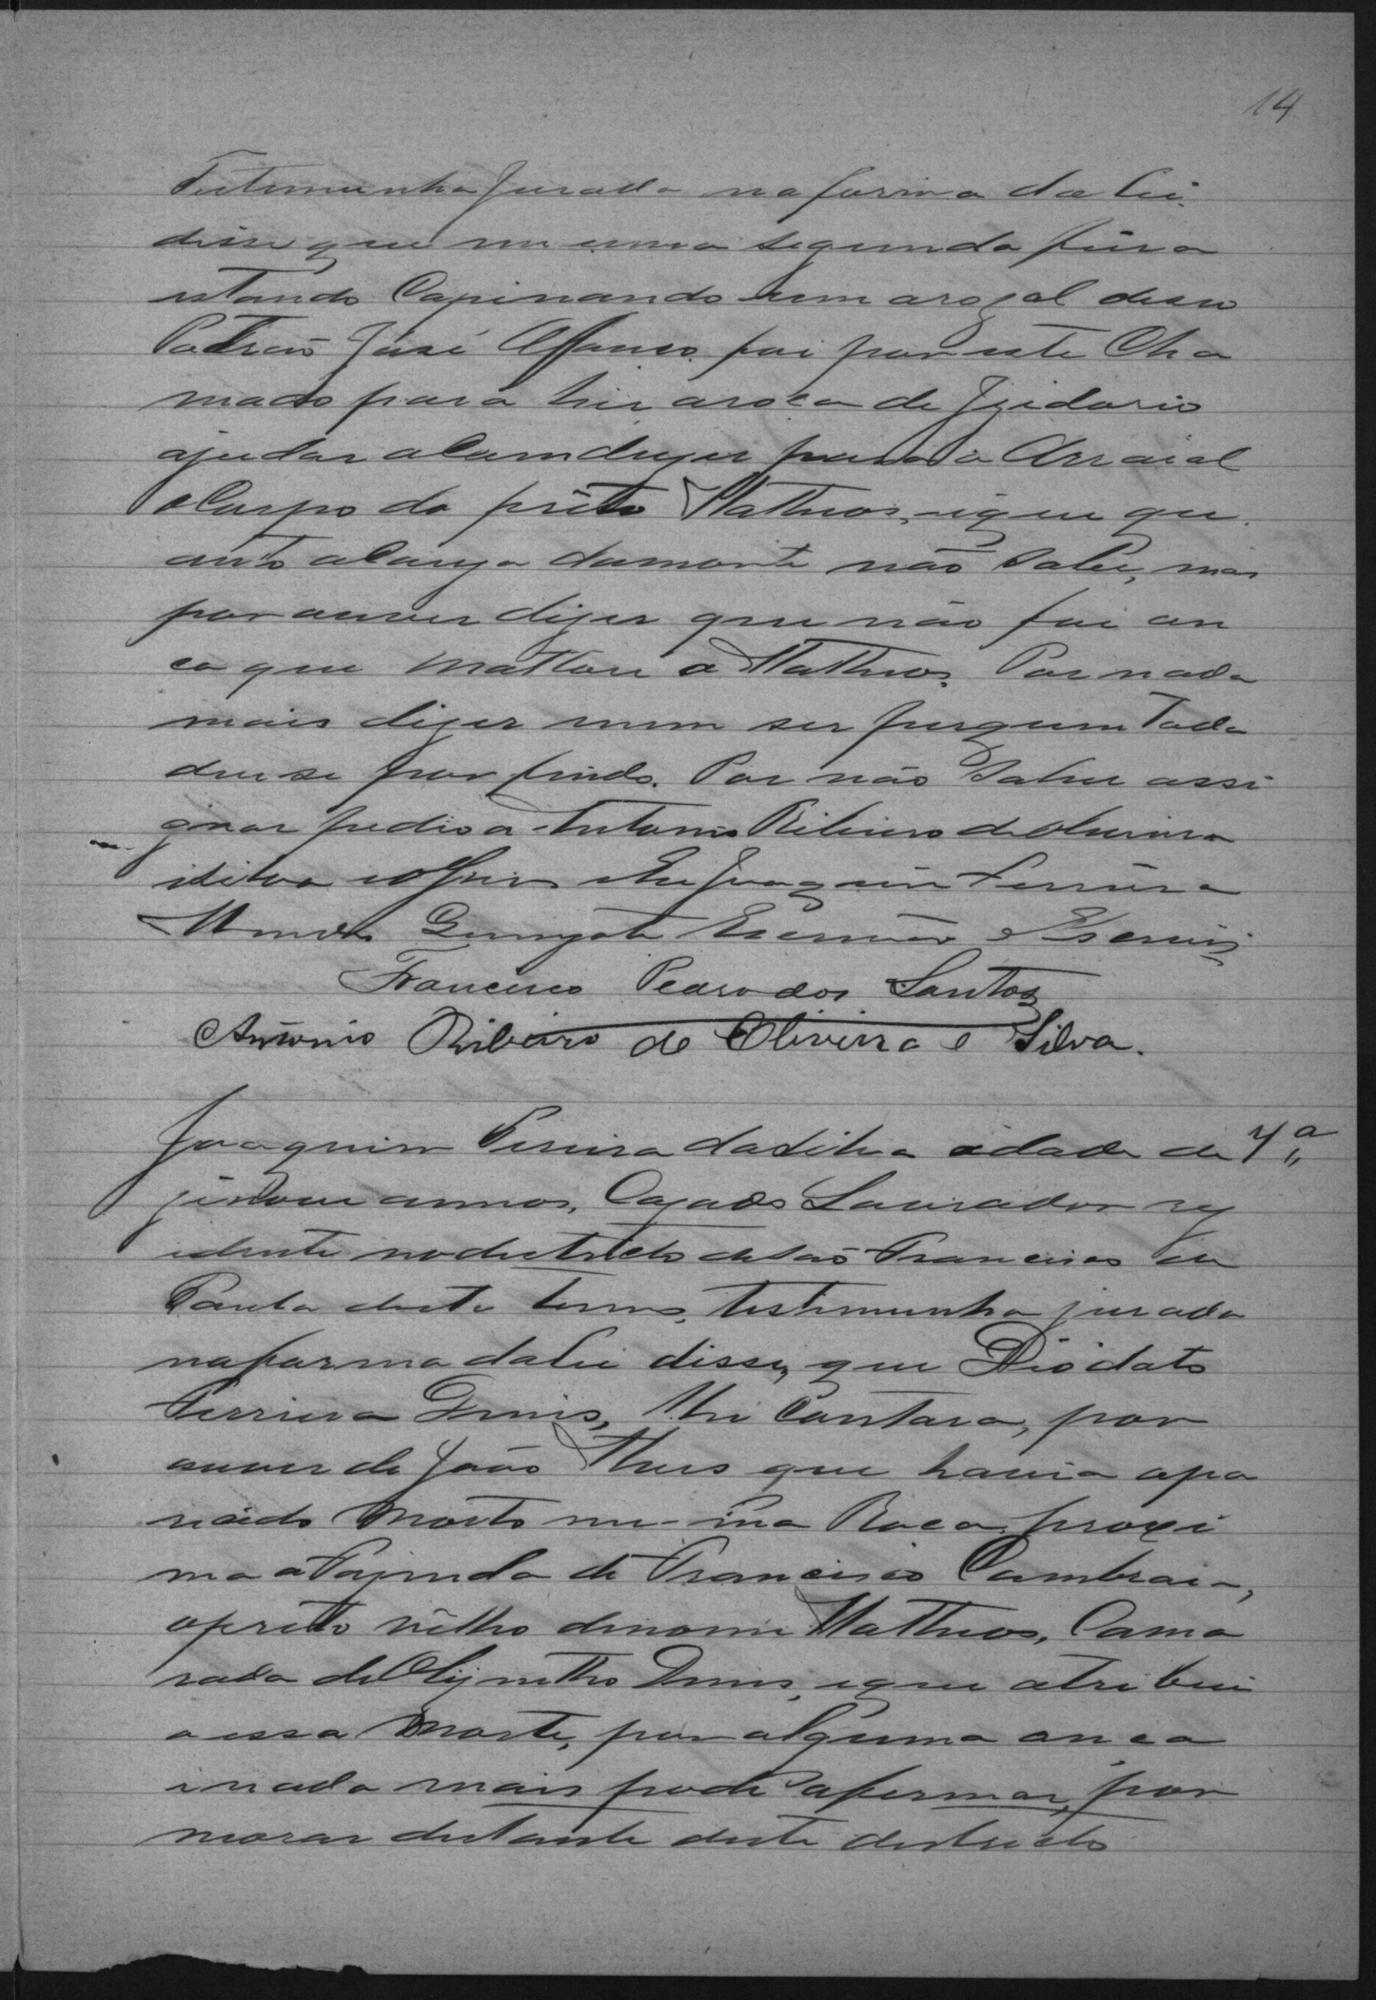 14
Testemunha Jurada na forma da lei
disse que numa segunda feira
estando Capinando um arozal deseu
Patrão José Affonso foi por este Cha
mado para hir aroca de Izidorio
ajudar a Comduzir para o Arraial
o Corpo do prêto Matheos, e que qu
anto a Cauza damorte não Sabe, mas
por ouver dizer que não foi on
ca que mattou a Matheos. Por nada
mais dizer nem ser perguntado
deu se por findo. Por não Saber assi
gnar pedio a Antonio Ribeiro de Oliveira
eSilva e o Juis eEu Joaquim Ferreira
Escrivão o Escrevi
Francisco Pedro dos Santos
Antonio Ribeiro de Oliveira e Silva.
Joaquim Pereira daSilva idade de 4ª
annos, Cazado Lavrador rez
idente nodestricto deSão Francisco de
Paula deste termo, testemunha jurada
naforma dalei disse, que Diódato
Ferreira Dinis, lhe Contara, por
ouver de João que havia apa
recido Morto nu-ma Roca proxi
ma a Fazenda de Francisco Cambraia,
oprêto vêlho denome Matheos, Cama
rada de Olyntho Dinis, e que atribui
a essa Morte, por alguma onca
inada mais pode afirmar, por
morar distante deste destricto